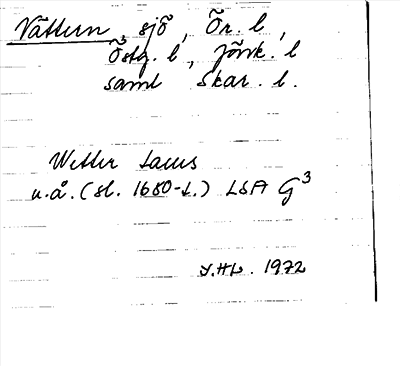 Vättern, sjö, Ör. l,
Östg. l, Jönk. l
samt Skar. l.
Wetter Lacus
u.å. (sl. 1680-t.) LSA G³
Y.HL. 1972